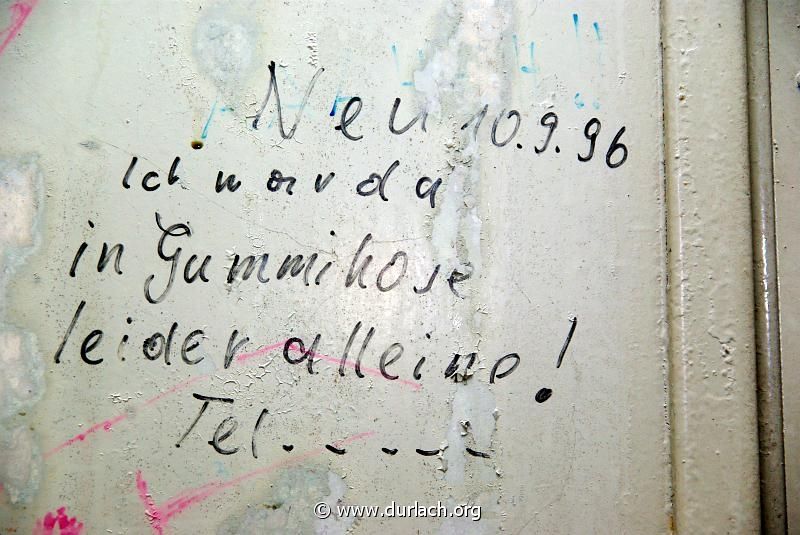 Neu 10.9.96
Ich war da
in Gummihose
leider alleine!
Tel.....
© www.durlach.org